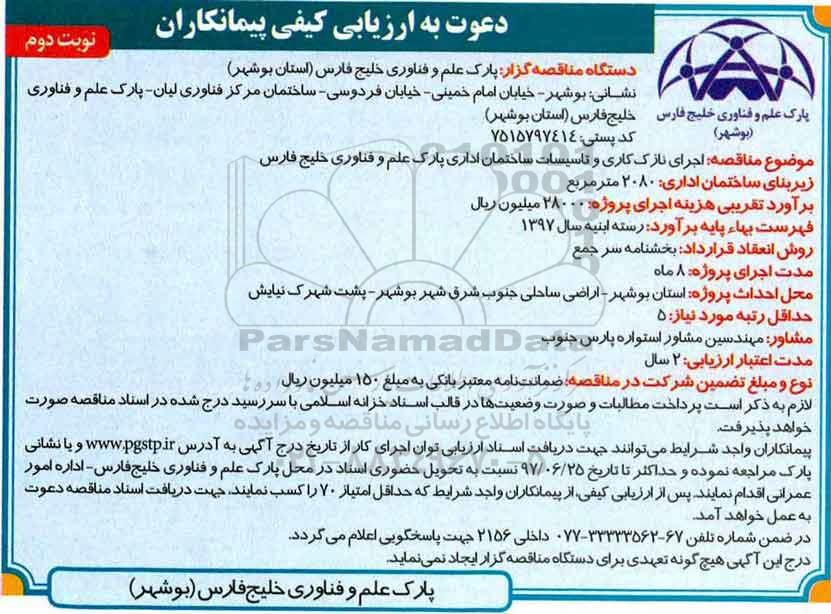 دعوت به ارزیابی کیفی پیمانکاران
نوبت دوم
پارک علم و فناوری خلیج فارس
(بوشهر)
دستگاه مناقصه‌گزار: پارک علم و فناوری خلیج فارس (استان بوشهر)
نشانی: بوشهر - خیابان امام خمینی - خیابان فردوسی - ساختمان مرکز فناوری لیان - پارک علم و فناوری
خلیج‌فارس (استان بوشهر)
کد پستی: ۷۵۱۵۷۹۷۴۱۴
موضوع مناقصه: اجرای نازک‌کاری و تاسیسات ساختمان اداری پارک علم و فناوری خلیج فارس
زیربنای ساختمان اداری: ۲۰۸۰ مترمربع
برآورد تقریبی هزینه اجرای پروژه: ۲۸۰۰۰ میلیون ریال
فهرست بهاء پایه برآورد: رسته ابنیه سال ۱۳۹۷
روش انعقاد قرارداد: بخشنامه سر جمع
مدت اجرای پروژه: ۸ ماه
محل احداث پروژه: استان بوشهر - اراضی ساحلی جنوب شرق شهر بوشهر - پشت شهرک نیایش
حداقل رتبه مورد نیاز: ۵
مشاور: مهندسین مشاور استواره پارس جنوب
مدت اعتبار ارزیابی: ۲ سال
نوع و مبلغ تضمین شرکت در مناقصه: ضمانت‌نامه معتبر بانکی به مبلغ ۱۵۰ میلیون ریال
لازم به ذکر است پرداخت مطالبات و صورت وضعیت‌ها در قالب اسناد خزانه اسلامی با سررسید درج شده در اسناد مناقصه صورت
خواهد پذیرفت.
پیمانکاران واجد شرایط می‌توانند جهت دریافت اسناد ارزیابی توان اجرای کار از تاریخ درج آگهی به آدرس www.pgstp.ir و یا نشانی
پارک مراجعه نموده و حداکثر تا تاریخ ۹۷/۰۶/۲۵ نسبت به تحویل حضوری اسناد در محل پارک علم و فناوری خلیج‌فارس - اداره امور
عمرانی اقدام نمایند. پس از ارزیابی کیفی، از پیمانکاران واجد شرایط که حداقل امتیاز ۷۰ را کسب نمایند، جهت دریافت اسناد مناقصه دعوت
به عمل خواهد آمد.
در ضمن شماره تلفن ۶۷-۳۳۳۳۳۵۶۲-۰۷۷ داخلی ۲۱۵۶ جهت پاسخگویی اعلام می‌گردد.
درج این آگهی هیچ‌گونه تعهدی برای دستگاه مناقصه‌گزار ایجاد نمی‌نماید.
پارک علم و فناوری خلیج‌فارس (بوشهر)
ParsNamadData
پایگاه اطلاع رسانی مناقصه و مزایده